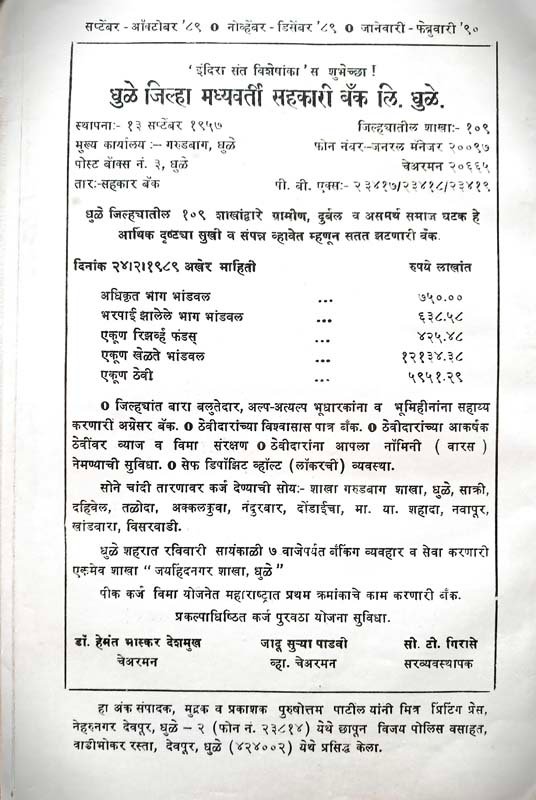 सप्टेंबर - ऑक्टोबर '८९ ० नोव्हेंबर - डिसेंबर '८९ ० जानेवारी - फेब्रुवारी '९०
' इंदिरा संत विशेषांका ' स शुभेच्छा !
धुळे जिल्हा मध्यवर्ती सहकारी बँक लि. धुळे.
स्थापना:- १३ सप्टेंबर १९५७ जिल्ह्यातील शाखा:- १०९
मुख्य कार्यालय :-- गरुडबाग, धुळे फोन नंबर:-जनरल मॅनेजर २००९७
पोस्ट बॉक्स नं. ३, धुळे चेअरमन २०६६५
तार:-सहकार बँक पी. बी. एक्स:- २३४१७/२३४१८/२३४१९
धुळे जिल्ह्यातील १०९ शाखांद्वारे ग्रामीण, दुर्बल व असमर्थ समाज घटक हे
आर्थिक दृष्ट्या सुखी व संपन्न व्हावेत म्हणून सतत झटणारी बँक.
दिनांक २४।२।१९८९ अखेर माहिती रुपये लाखांत
अधिकृत भाग भांडवल ... ७५०.००
भरपाई झालेले भाग भांडवल ... ६३८.५८
एकूण रिझर्व्ह फंडस् ... ४२५.४८
एकूण खेळते भांडवल ... १२१३४.३८
एकूण ठेवी ... ५९५१.२९
० जिल्ह्यांत बारा बलुतेदार, अल्प-अत्यल्प भूधारकांना व भूमिहीनांना सहाय्य
करणारी अग्रेसर बँक. ० ठेवीदारांच्या विश्वासास पात्र बँक. ० ठेवीदारांच्या आकर्षक
ठेवींवर व्याज व विमा संरक्षण ० ठेवीदारांना आपला नॉमिनी ( वारस )
नेमण्याची सुविधा. ० सेफ डिपॉझिट व्हॉल्ट (लॉकरची) व्यवस्था.
सोने चांदी तारणावर कर्ज देण्याची सोय:- शाखा गरुडबाग शाखा, धुळे, साक्री,
दहिवेल, तळोदा, अक्कलकुवा, नंदुरबार, दोंडाईचा, मा. या. शहादा, नवापूर,
खांडवारा, विसरवाडी.
धुळे शहरात रविवारी सायंकाळी ७ वाजेपर्यत बँकिंग व्यवहार व सेवा करणारी
एकमेव शाखा " जयहिंदनगर शाखा, धुळे "
पीक कर्ज विमा योजनेत महाराष्ट्रात प्रथम क्रमांकाचे काम करणारी बँक.
प्रकल्पाधिष्ठित कर्ज पुरवठा योजना सुविधा.
डॉ. हेमंत भास्कर देशमुख जादू सुऱ्या पाडवी सी. टी. गिरासे
चेअरमन व्हा. चेअरमन सरव्यवस्थापक
हा अंक संपादक, मुद्रक व प्रकाशक पुरुषोत्तम पाटील यांनी मित्र प्रिटिंग प्रेस,
नेहरुनगर देवपूर, धुळे - २ (फोन नं. २३८१४) येथे छापून विजय पोलिस वसाहत,
वाडीभोकर रस्ता, देवपूर, धुळे (४२४००२) येथे प्रसिद्ध केला.